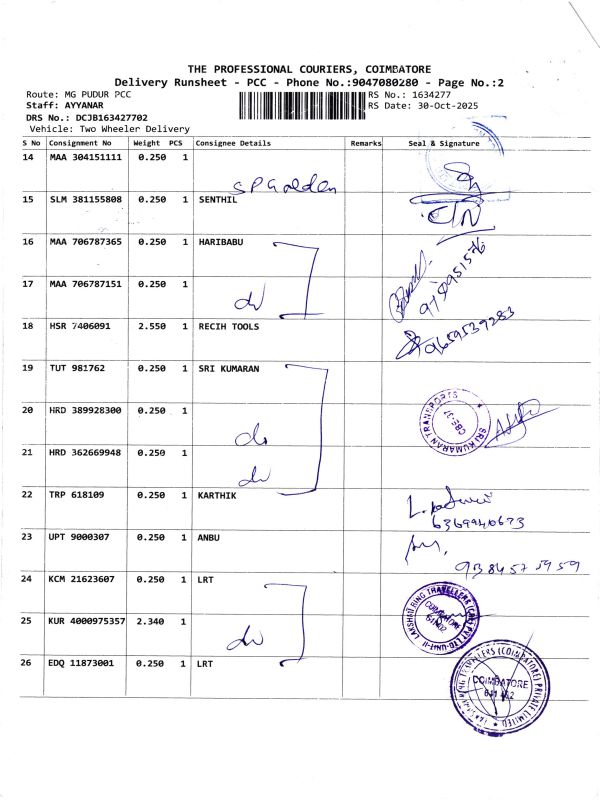 THE PROFESSIONAL COURIERS, COIMBATORE
Delivery Runsheet - PCC - Phone No.:9047080280 - Page No.:2
Route: MG PUDUR PCC RS No.: 1634277
Staff: AYYANAR RS Date: 30-Oct-2025
DRS No.: DCJB163427702
Vehicle: Two Wheeler Delivery
S No Consignment No Weight PCS Consignee Details Remarks Seal & Signature
14 MAA 304151111 0.250 1
S P Golden
15 SLM 381155808 0.250 1 SENTHIL
16 MAA 706787365 0.250 1 HARIBABU
17 MAA 706787151 0.250 1
do
18 HSR 7406091 2.550 1 RECIH TOOLS
9659539283
19 TUT 981762 0.250 1 SRI KUMARAN
SRI KUMARAN TRANSPORTS
CBE-37
20 HRD 389928300 0.250 1
do
21 HRD 362669948 0.250 1
do
22 TRP 618109 0.250 1 KARTHIK
23 UPT 9000307 0.250 1 ANBU
9384575959
24 KCM 21623607 0.250 1 LRT
25 KUR 4000975357 2.340 1
do
26 EDQ 11873001 0.250 1 LRT
TRAVELLERS (COIMBATORE) PRIVATE LIMITED
COIMBATORE